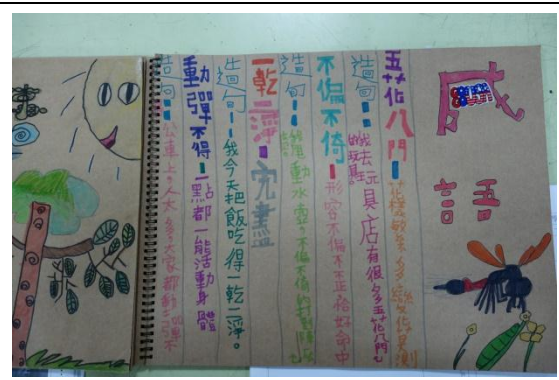 成語
五花八門-花樣繁多,變化莫測
造句:我去玩具店有很多五花八門的玩具
不偏不倚-形容不偏不正恰好命中
造句:動水壺,不偏不倚的打到
一乾二淨-完盡
造句:我今天把飯吃得一乾二淨。
動彈不得-一點都一能活動身體
造句:公車上,人太多,大家都動彈不